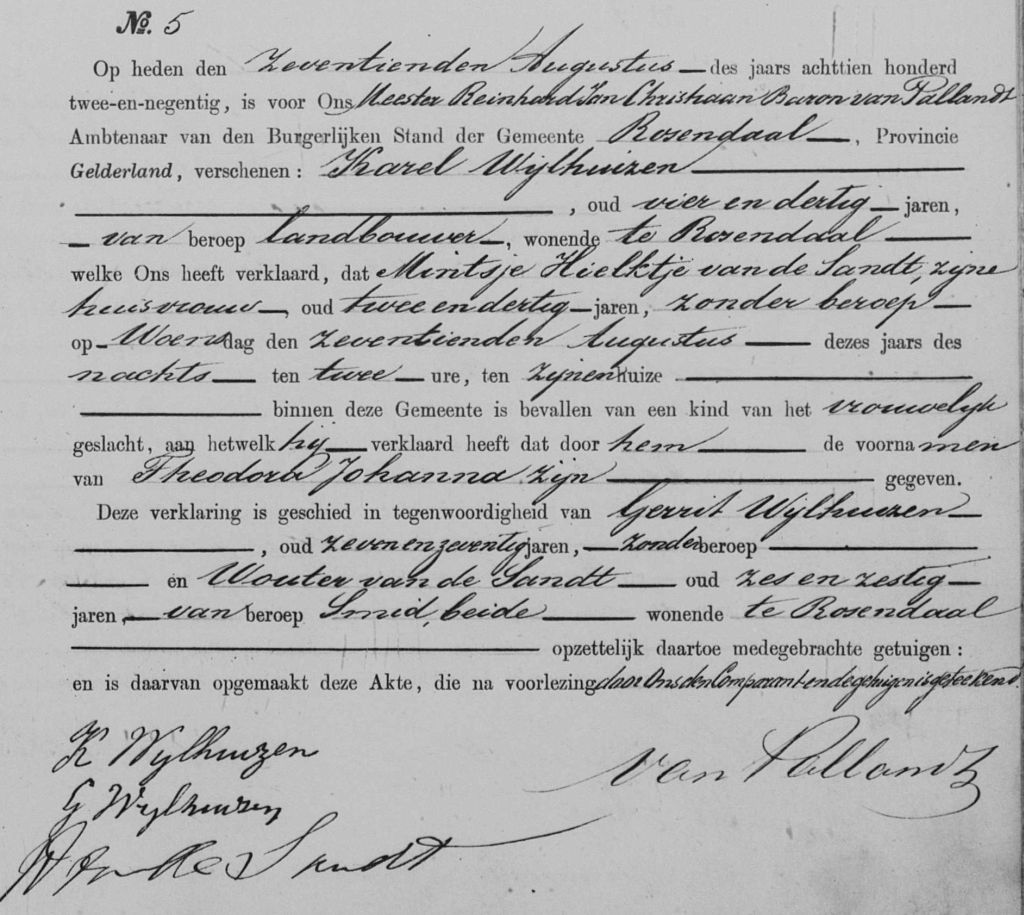 No. 5
Op heden den Zeventienden Augustus des jaars achttien honderd
twee-en-negentig, is voor Ons Meester Reinhard Jan Christiaan Baron van Pallandt
Ambtenaar van den Burgerlijken Stand der Gemeente Rosendaal, Provincie
Gelderland, verschenen: Karel Wijlhuizen
, oud vier en dertig jaren,
van beroep landbouwer, wonende te Rosendaal
welke Ons heeft verklaard, dat Mintsje Hielktje van de Sandt, zijne
huisvrouw, oud twee en dertig jaren, zonder beroep
op Woensdag den zeventienden Augustus dezes jaars des
nachts ten twee ure, ten zijnen huize
binnen deze Gemeente is bevallen van een kind van het vrouwelijk
geslacht, aan hetwelk hij verklaard heeft dat door hem de voornamen
van Theodora Johanna zijn gegeven.
Deze verklaring is geschied in tegenwoordigheid van Gerrit Wijlhuizen
, oud zeven en zeventig jaren, zonder beroep
en Wouter van de Sandt oud zes en zestig
jaren, van beroep Smid, beide wonende te Rosendaal
opzettelijk daartoe medegebrachte getuigen:
en is daarvan opgemaakt deze Akte, die na voorlezing door Ons den Comparant en de getuigen is geteekend.
K Wijlhuizen
van Pallandt
G Wijlhuizen
W van de Sandt